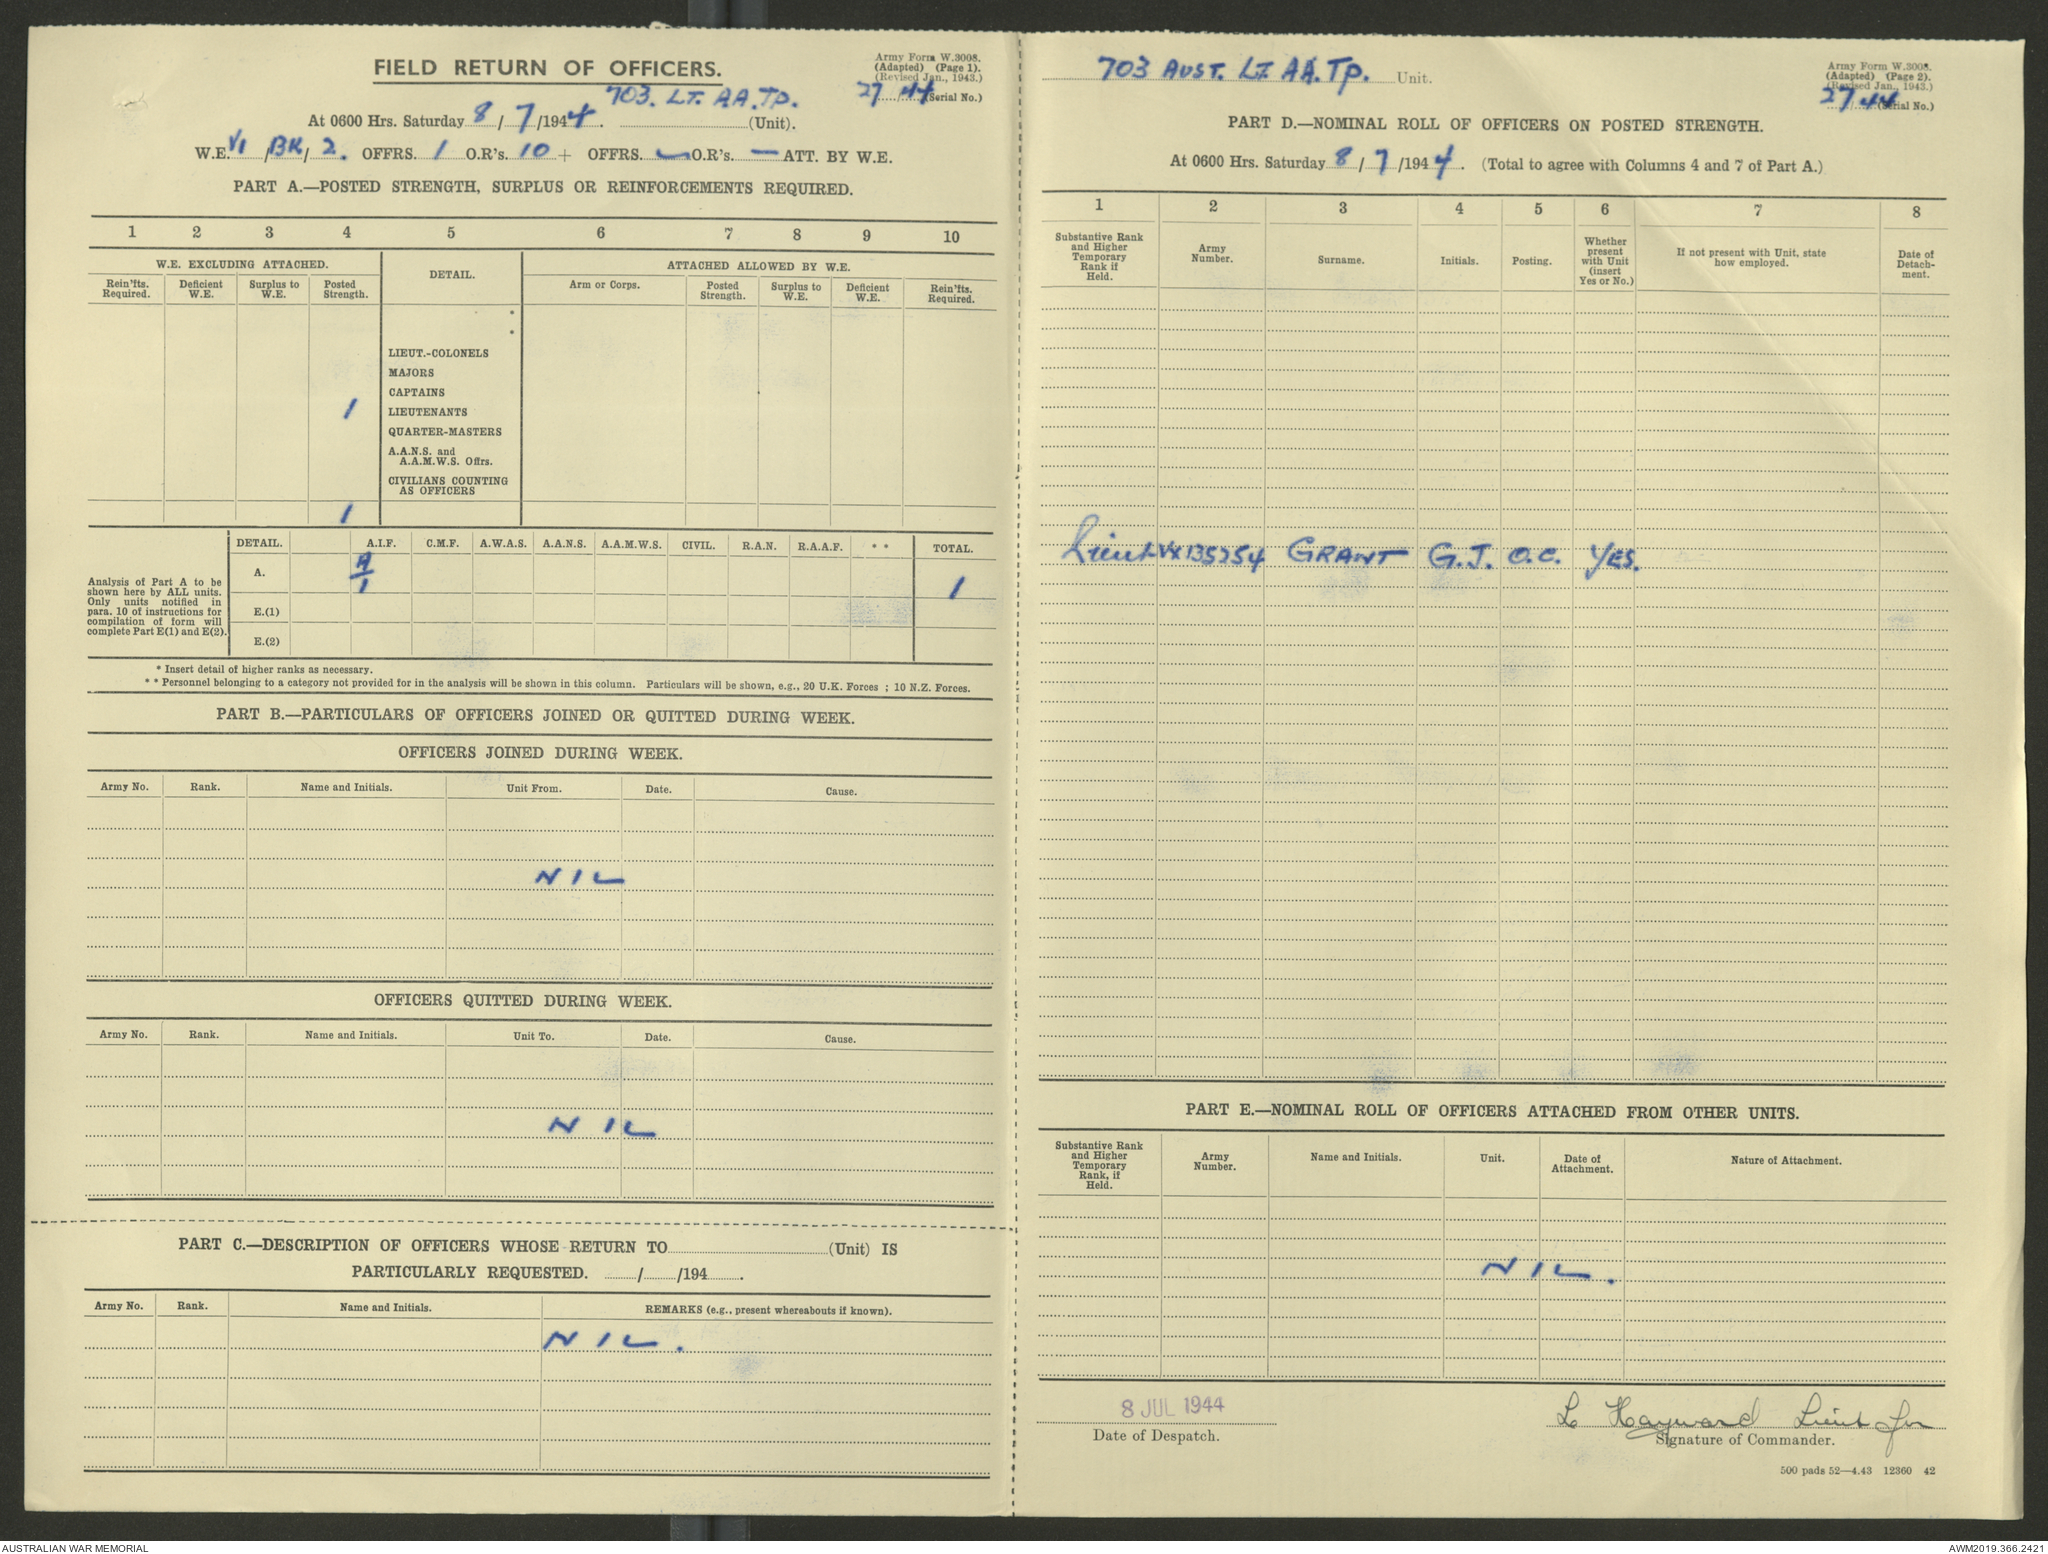 FIELD RETURN OF OFFICERS.
Army Form W.3008.
(Adapted) (Page 1).
(Revised Jan., 1943.)
27/44 (Serial No.)
At 0600 Hrs. Saturday 8/7/1944. 703. LT. AA. TP. (Unit).
W.E. VI/BK/2. OFFRS. 1 O.R's. 10 + OFFRS. — O.R's. — ATT. BY W.E.
PART A.—POSTED STRENGTH, SURPLUS OR REINFORCEMENTS REQUIRED.
1 2 3 4 5 6 7 8 9 10
W.E. EXCLUDING ATTACHED. DETAIL. ATTACHED ALLOWED BY W.E.
Rein'fts. Required. Deficient W.E. Surplus to W.E. Posted Strength. Arm or Corps. Posted Strength. Surplus to W.E. Deficient W.E. Rein'fts. Required.
*
*
LIEUT.-COLONELS
MAJORS
CAPTAINS
1 LIEUTENANTS
QUARTER-MASTERS
A.A.N.S. and
A.A.M.W.S. Offrs.
CIVILIANS COUNTING
AS OFFICERS
1
Analysis of Part A to be
shown here by ALL units.
Only units notified in
para. 10 of instructions for
compilation of form will
complete Part E(1) and E(2).
DETAIL. A.I.F. C.M.F. A.W.A.S. A.A.N.S. A.A.M.W.S. CIVIL. R.A.N. R.A.A.F. * * TOTAL.
A. A/1 1
E.(1)
E.(2)
* Insert detail of higher ranks as necessary.
* * Personnel belonging to a category not provided for in the analysis will be shown in this column. Particulars will be shown, e.g., 20 U.K. Forces ; 10 N.Z. Forces.
PART B.—PARTICULARS OF OFFICERS JOINED OR QUITTED DURING WEEK.
OFFICERS JOINED DURING WEEK.
Army No. Rank. Name and Initials. Unit From. Date. Cause.
NIL
OFFICERS QUITTED DURING WEEK.
Army No. Rank. Name and Initials. Unit To. Date. Cause.
NIL
PART C.—DESCRIPTION OF OFFICERS WHOSE RETURN TO (Unit) IS
PARTICULARLY REQUESTED. / /194 .
Army No. Rank. Name and Initials. REMARKS (e.g., present whereabouts if known).
NIL.
703 AUST. LT. AA. TP. Unit.
Army Form W.3008.
(Adapted) (Page 2).
(Revised Jan., 1943.)
27/44 (Serial No.)
PART D.—NOMINAL ROLL OF OFFICERS ON POSTED STRENGTH.
At 0600 Hrs. Saturday 8/7/1944. (Total to agree with Columns 4 and 7 of Part A.)
1 2 3 4 5 6 7 8
Substantive Rank and Higher Temporary Rank if Held. Army Number. Surname. Initials. Posting. Whether present with Unit (insert Yes or No.) If not present with Unit, state how employed. Date of Detach-ment.
Lieut VX135254 GRANT G.J. O.C. YES.
PART E.—NOMINAL ROLL OF OFFICERS ATTACHED FROM OTHER UNITS.
Substantive Rank and Higher Temporary Rank, if Held. Army Number. Name and Initials. Unit. Date of Attachment. Nature of Attachment.
NIL.
8 JUL 1944
Date of Despatch.
L Hayward Lieut for
Signature of Commander.
500 pads 52—4.43 12360 42
AUSTRALIAN WAR MEMORIAL
AWM2019.366.2421